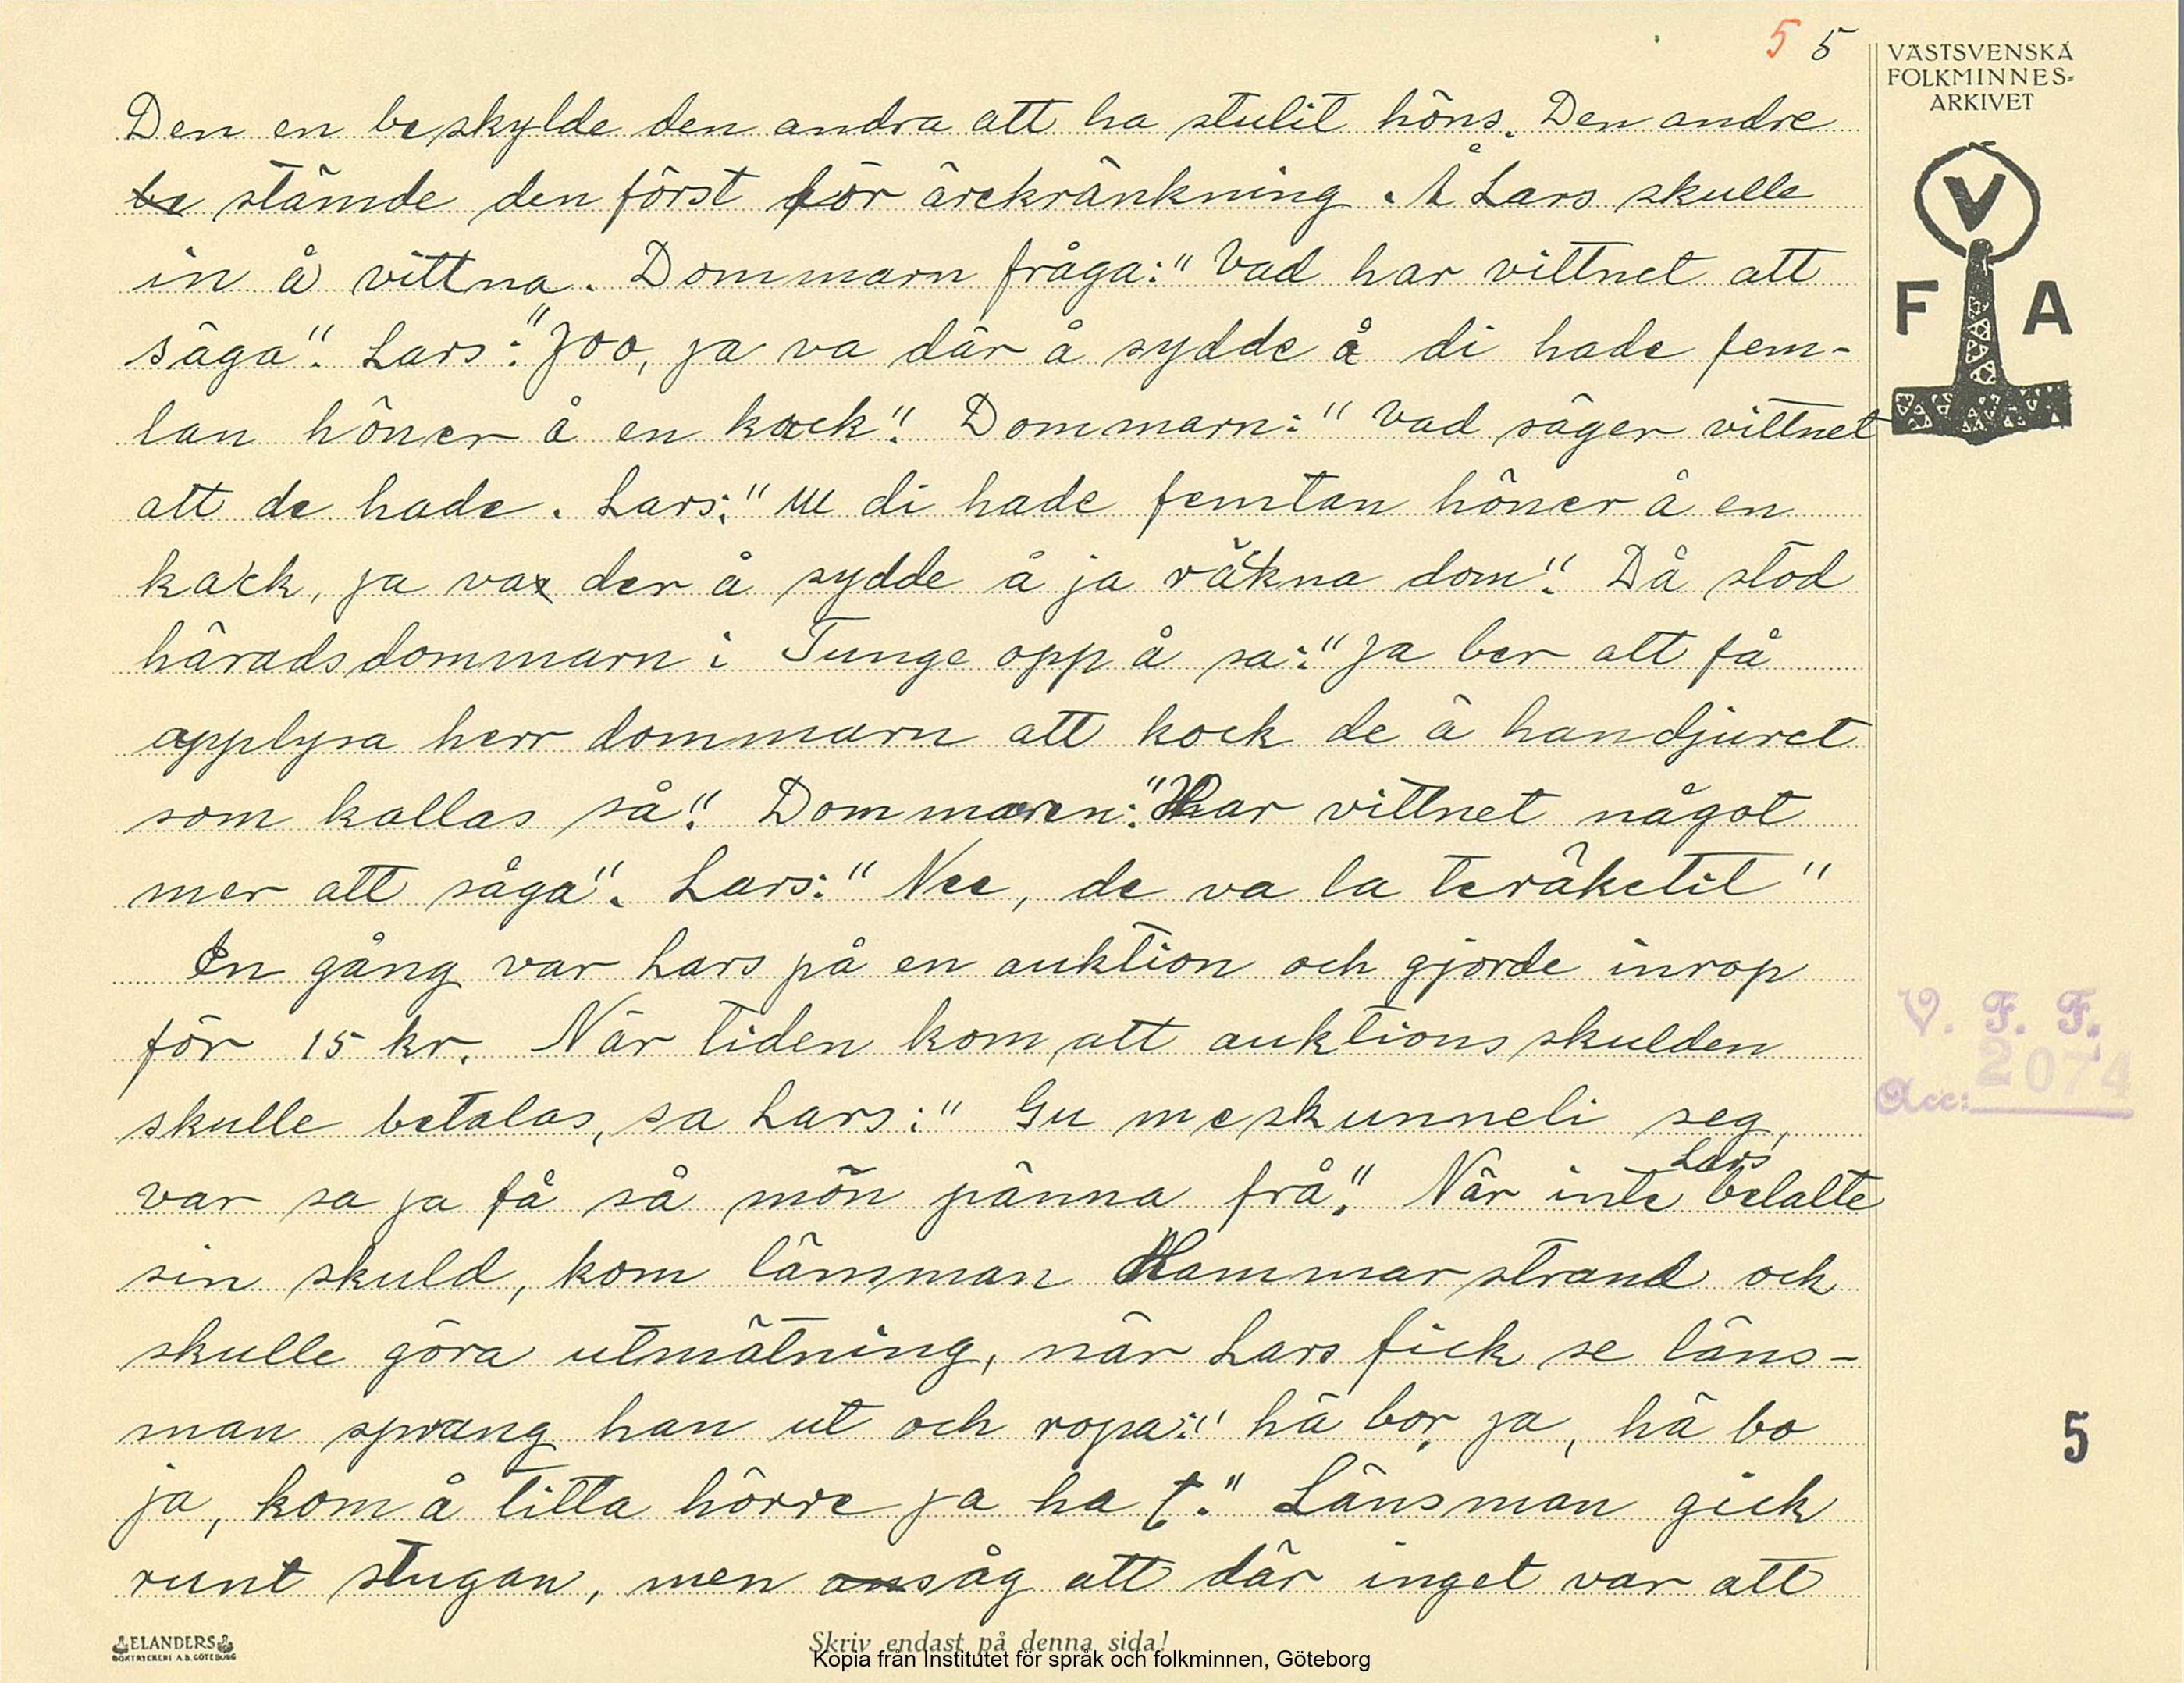 5 5
VÄSTSVENSKA
FOLKMINNES-
ARKIVET
V
F A
Den en beskylde den andra att ha stulit höns. Den andre
be stämde den först för ärekränkning. Å Lars skulle
in å vittna. Dommarn fråga: "Vad har vittnet att
säga". Lars: "Joo, ja va där å sydde å di hade fem-
tan höner å en kock". Dommarn: "Vad säger vittnet
att de hade. Lars: " di hade femtan höner å en
kack, ja va der å sydde å ja räkna dom". Då stod
häradsdommarn i Tunge opp å sa: "Ja ber att få
opplysa herr dommarn att kock de ä handjuret
som kallas så". Dommaren: "Har vittnet något
mer att säga". Lars: "Nee, de va la teräketil"
En gång var Lars på en auktion och gjorde inrop
för 15 kr. När tiden kom att auktionsskulden
skulle betalas, sa Lars: "Gu meskunneli seg,
var sa ja få så mön pänna frå". När inte Lars betalte
sin skuld, kom länsman Hammarstrand och
skulle göra utmätning, när Lars fick se läns-
man sprang han ut och ropa: "hä bor ja, hä bo
ja, kom å titta hörre ja ha t." Länsman gick
runt stugan, men såg att där inget var att
V. F. F.
Acc: 2074
5
ELANDERS
BOKTRYCKERI A.B. GÖTEBORG
Skriv endast på denna sida!
Kopia från Institutet för språk och folkminnen, Göteborg